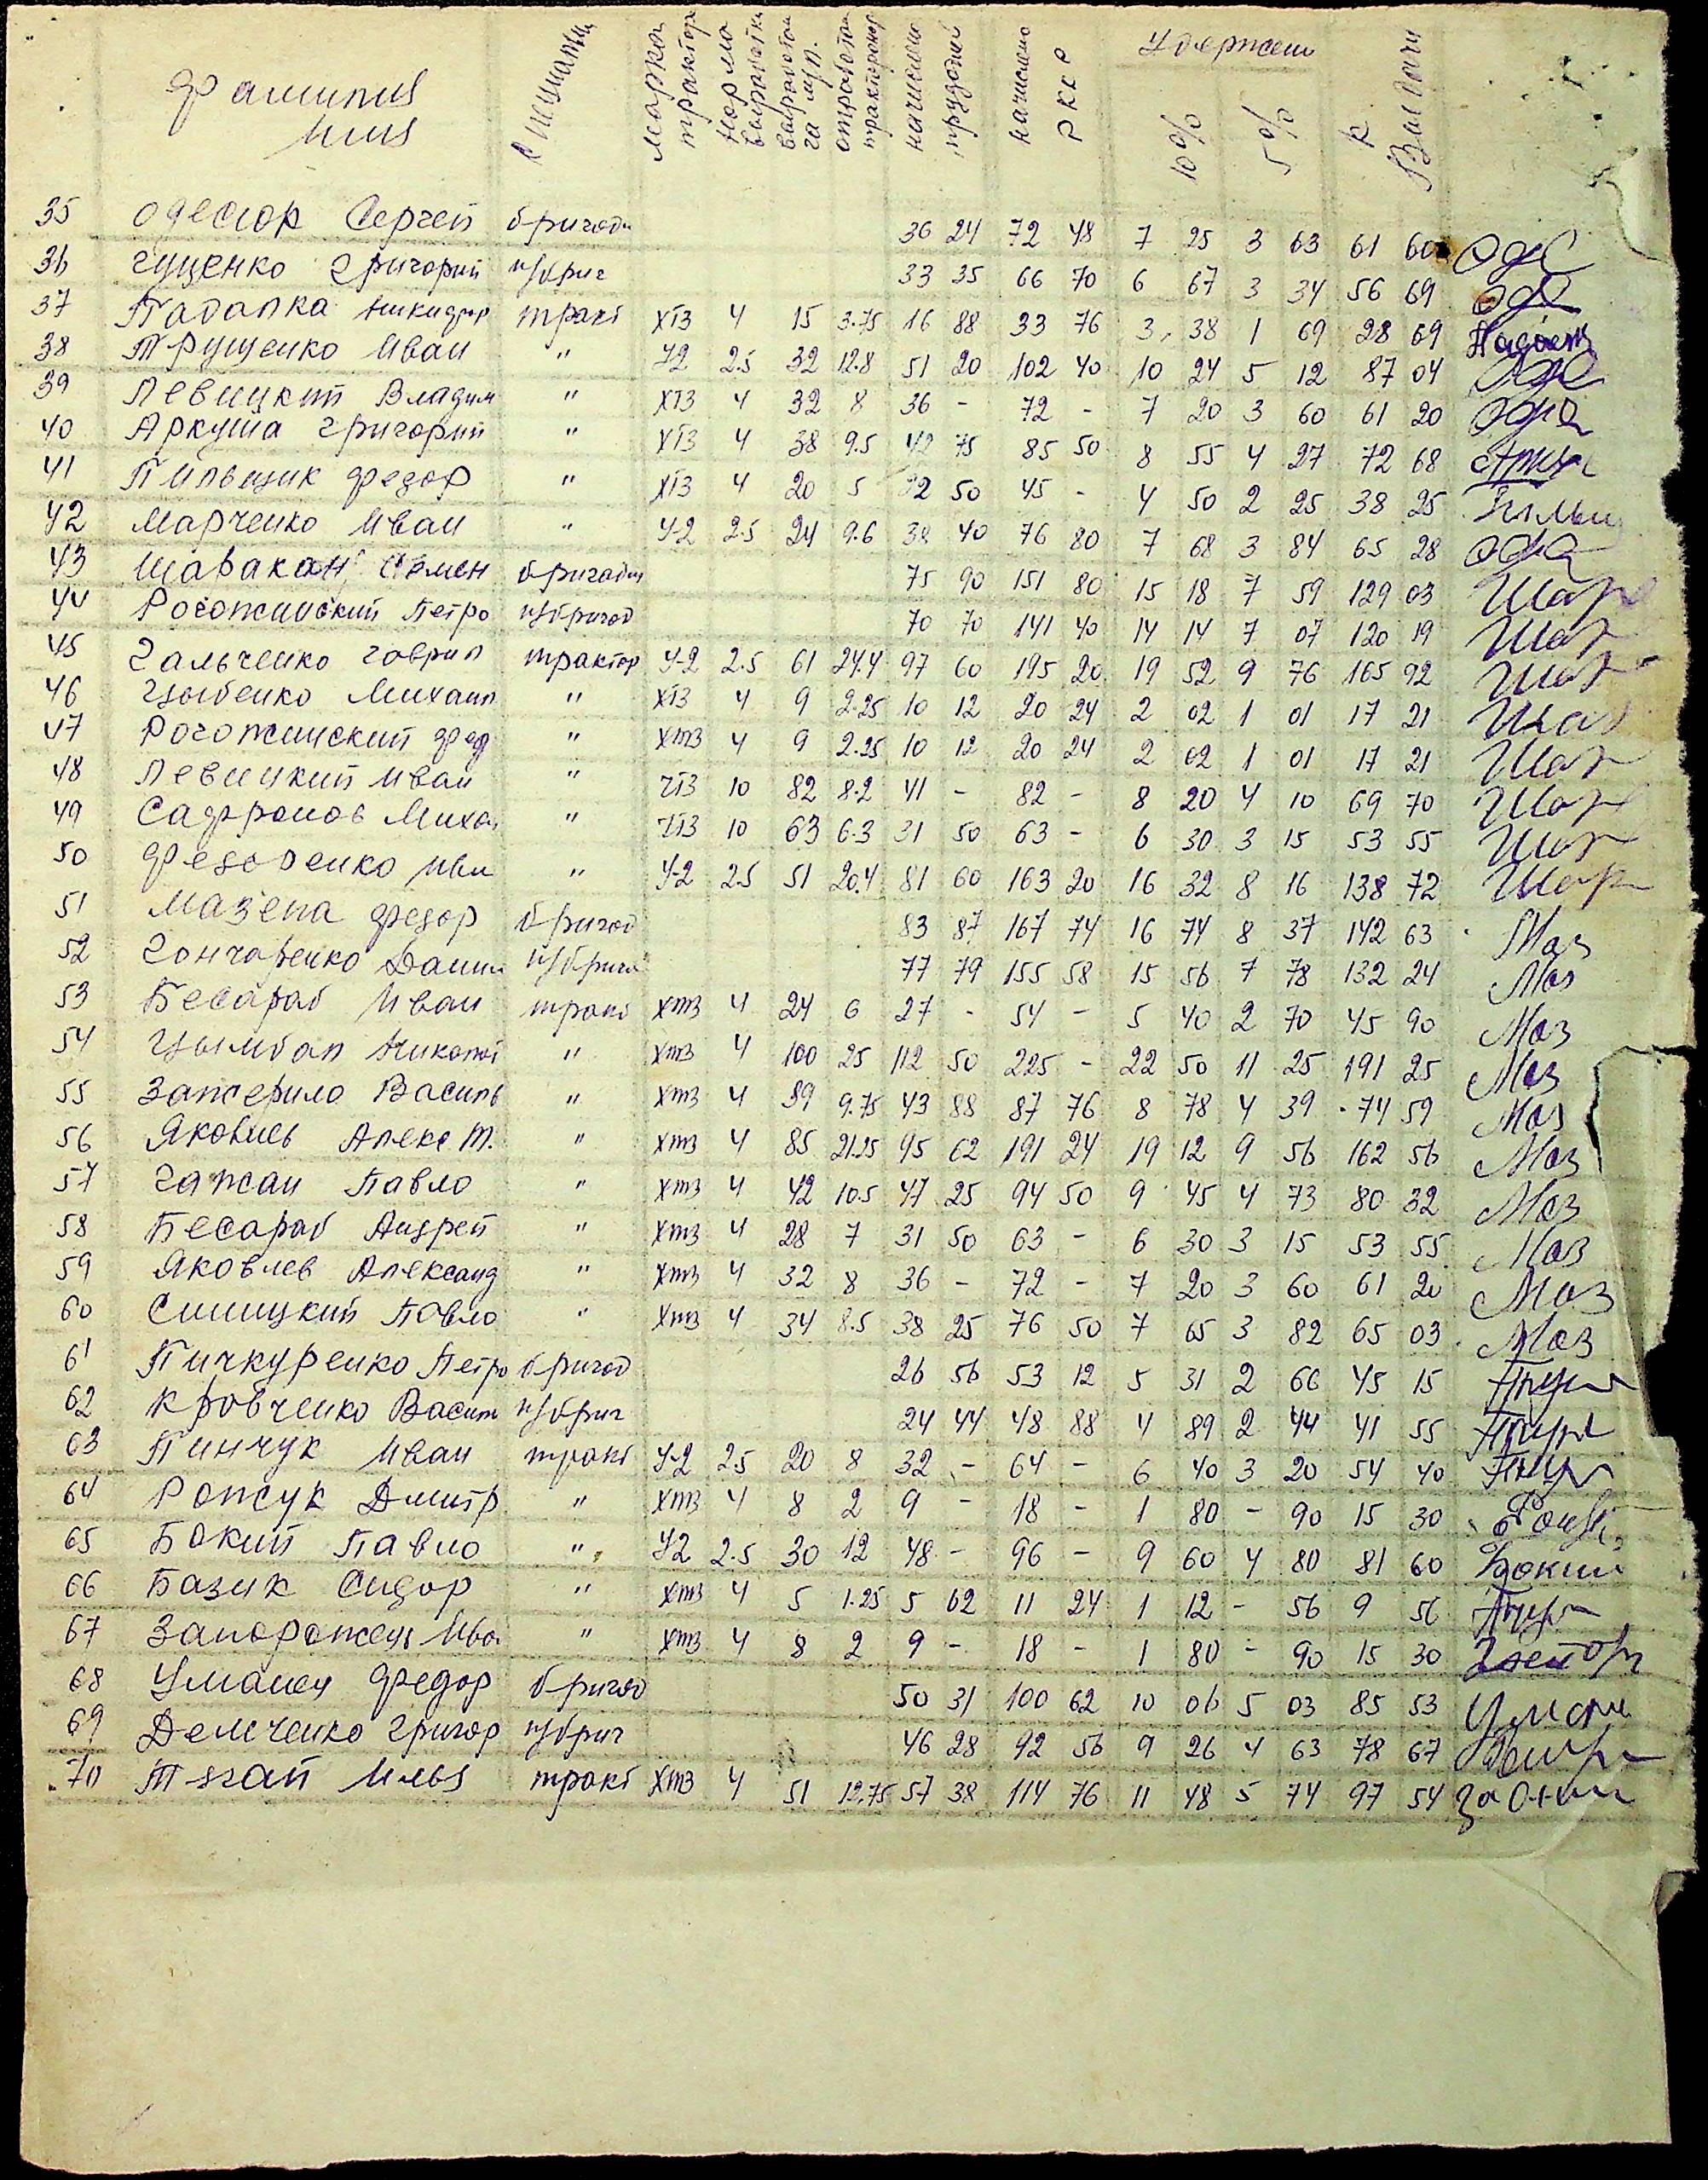 фамилия имя специальн марка трактор норма выработки выработан га м/п. отработан тракторонор начислено трудодней начислено Р ККР Удержан 10% 5% К Выплати
35 Одестор Сергей бригади 36 24 72 48 7 25 3 63 61 60 Оде
36 Гуценко Григорий п/бриг 33 35 66 70 6 67 3 34 56 69
37 Падалка Никидор тракт ХТЗ 4 15 3.75 16 88 33 76 3 38 1 69 28 69
38 Трущенко Иван " У2 2.5 32 12.8 51 20 102 40 10 24 5 12 87 04
39 Левицкий Владим " ХТЗ 4 32 8 36 - 72 - 7 20 3 60 61 20
40 Аркуша Григорий " ХТЗ 4 38 9.5 42 75 85 50 8 55 4 27 72 68
41 Пильщик Федор " ХТЗ 4 20 5 22 50 45 - 4 50 2 25 38 25
42 Марченко Иван " У-2 2.5 24 9.6 38 40 76 80 7 68 3 84 65 28
43 Шаракан Семен бригади 75 90 151 80 15 18 7 59 129 03 Шар
44 Рогожинский Петро п/бригад 70 70 141 40 14 14 7 07 120 19 Шар
45 Гальченко Гаврил трактор У-2 2.5 61 24.4 97 60 195 20 19 52 9 76 165 92 Шар
46 Цыбенко Михаил " ХТЗ 4 9 2.25 10 12 20 24 2 02 1 01 17 21 Шар
47 Рогожинский Фед " ХТЗ 4 9 2.25 10 12 20 24 2 02 1 01 17 21 Шар
48 Левицкий Иван " ЧТЗ 10 82 8.2 41 - 82 - 8 20 4 10 69 70 Шар
49 Сафронов Миха " ЧТЗ 10 63 6.3 31 50 63 - 6 30 3 15 53 55 Шар
50 Федоренко Ивн " У-2 2.5 51 20.4 81 60 163 20 16 32 8 16 138 72 Шар
51 Мазепа Федор бригад 83 87 167 74 16 74 8 37 142 63 Маз
52 Гончаренко Данил п/брига 77 79 155 58 15 56 7 78 132 24 Маз
53 Бесараб Иван тракт ХТЗ 4 24 6 27 - 54 - 5 40 2 70 45 90 Маз
54 Цымбал Николай " ХТЗ 4 100 25 112 50 225 - 22 50 11 25 191 25 Маз
55 Зажерило Василь " ХТЗ 4 39 9.75 43 88 87 76 8 78 4 39 74 59 Маз
56 Яковлев Алекс Т. " ХТЗ 4 85 21.25 95 62 191 24 19 12 9 56 162 56 Маз
57 Гажан Павло " ХТЗ 4 42 10.5 47 25 94 50 9 45 4 73 80 32 Маз
58 Бесараб Андрей " ХТЗ 4 28 7 31 50 63 - 6 30 3 15 53 55 Маз
59 Яковлев Александ " ХТЗ 4 32 8 36 - 72 - 7 20 3 60 61 20 Маз
60 Синицкий Павло " ХТЗ 4 34 8.5 38 25 76 50 7 65 3 82 65 03 Маз
61 Пичкуренко Петро бригад 26 56 53 12 5 31 2 66 45 15
62 Кравченко Васил п/бриг 24 44 48 88 4 89 2 44 41 55
63 Пинчук Иван тракт У-2 2.5 20 8 32 - 64 - 6 40 3 20 54 40
64 Ропсук Дмитр " ХТЗ 4 8 2 9 - 18 - 1 80 - 90 15 30
65 Бокий Павло " У2 2.5 30 12 48 - 96 - 9 60 4 80 81 60 Бокий
66 Базик Сидор " ХТЗ 4 5 1.25 5 62 11 24 1 12 - 56 9 56
67 Запорожец Ива " ХТЗ 4 8 2 9 - 18 - 1 80 - 90 15 30
68 Уманец Федор бригад 50 31 100 62 10 06 5 03 85 53 Уман
69 Демченко Григор п/бриг 46 28 92 56 9 26 4 63 78 67
70 Тягай Илья тракт ХТЗ 4 51 12.75 57 38 114 76 11 48 5 74 97 54